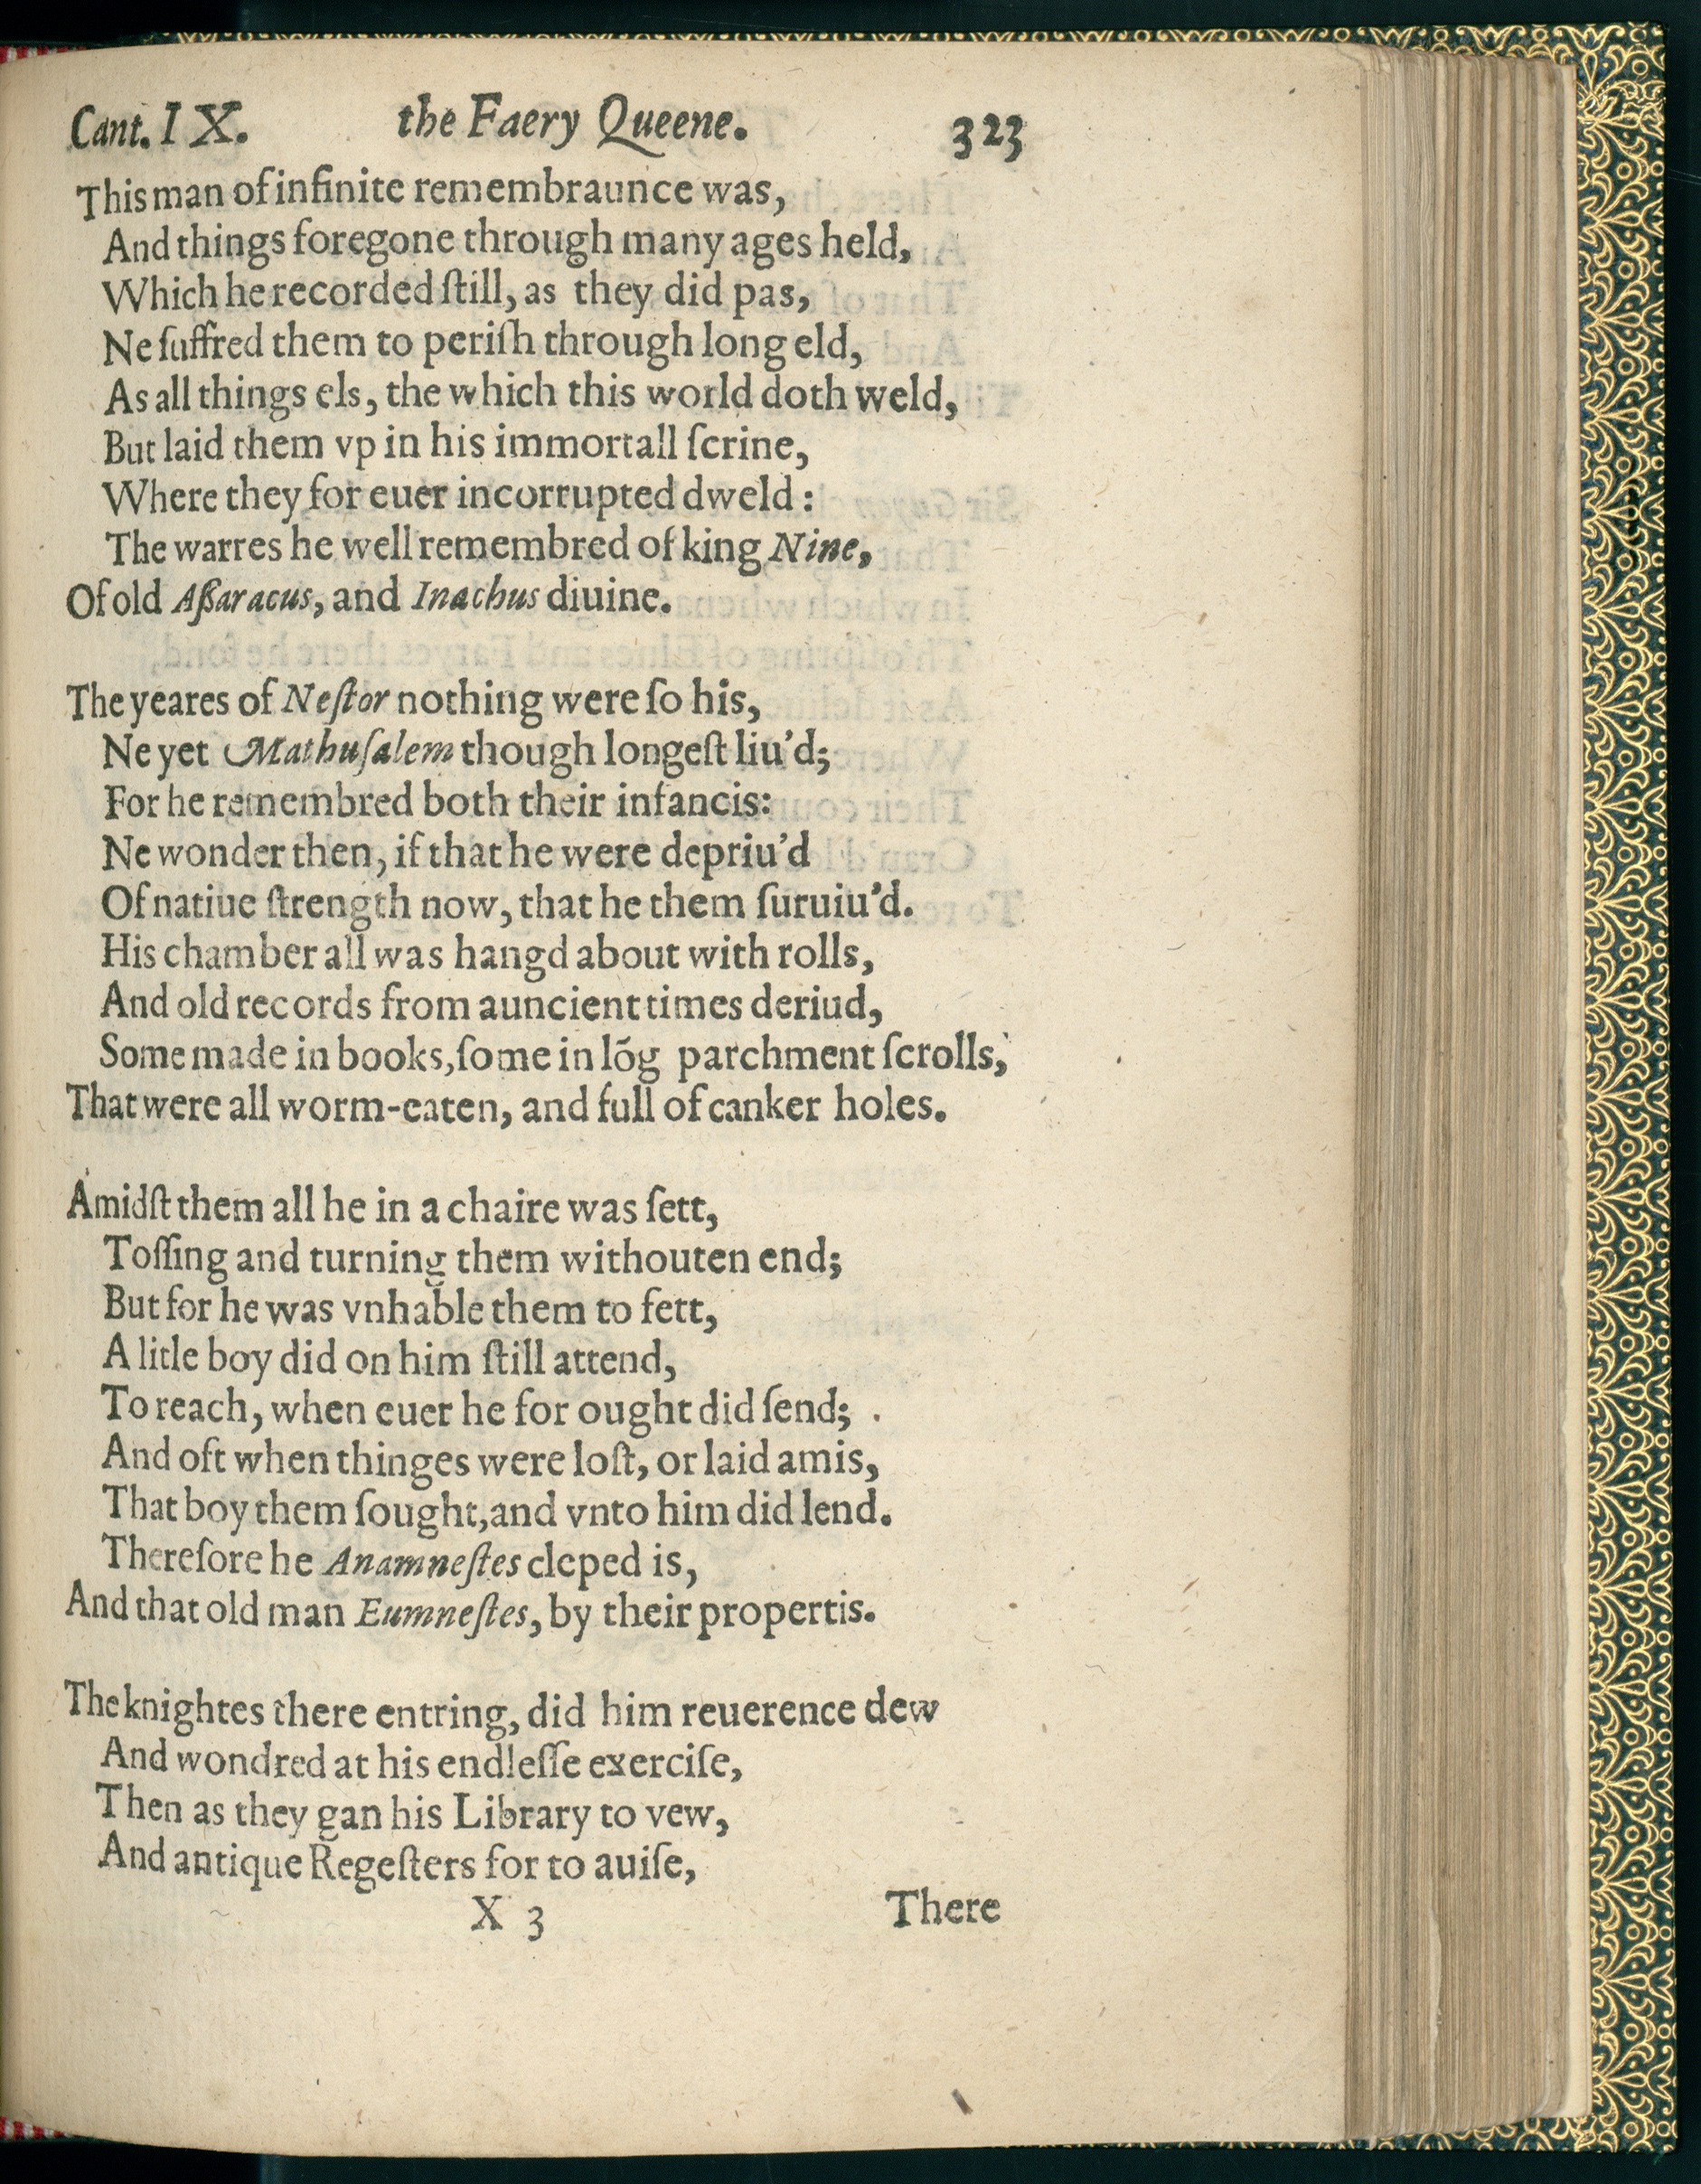 Cant. I X. the Faery Queene. 323
This man of infinite remembraunce was,
And things foregone through many ages held,
Which he recorded ſtill, as they did pas,
Ne ſuffred them to periſh through long eld,
As all things els, the which this world doth weld,
But laid them vp in his immortall ſcrine,
Where they for euer incorrupted dweld:
The warres he well remembred of king Nine,
Of old Aßaracus, and Inachus diuine.
The yeares of Neſtor nothing were ſo his,
Ne yet Mathuſalem though longeſt liu'd;
For he remembred both their infancis:
Ne wonder then, if that he were depriu'd
Of natiue ſtrength now, that he them ſuruiu'd.
His chamber all was hangd about with rolls,
And old records from auncient times deriud,
Some made in books, ſome in lõg parchment ſcrolls,
That were all worm-eaten, and full of canker holes.
Amidſt them all he in a chaire was ſett,
Toſſing and turning them withouten end;
But for he was vnhable them to fett,
A litle boy did on him ſtill attend,
To reach, when euer he for ought did ſend;
And oft when thinges were loſt, or laid amis,
That boy them ſought, and vnto him did lend.
Therefore he Anamneſtes cleped is,
And that old man Eumneſtes, by their propertis.
The knightes there entring, did him reuerence dew
And wondred at his endleſſe exerciſe,
Then as they gan his Library to vew,
And antique Regeſters for to auiſe,
X 3 There